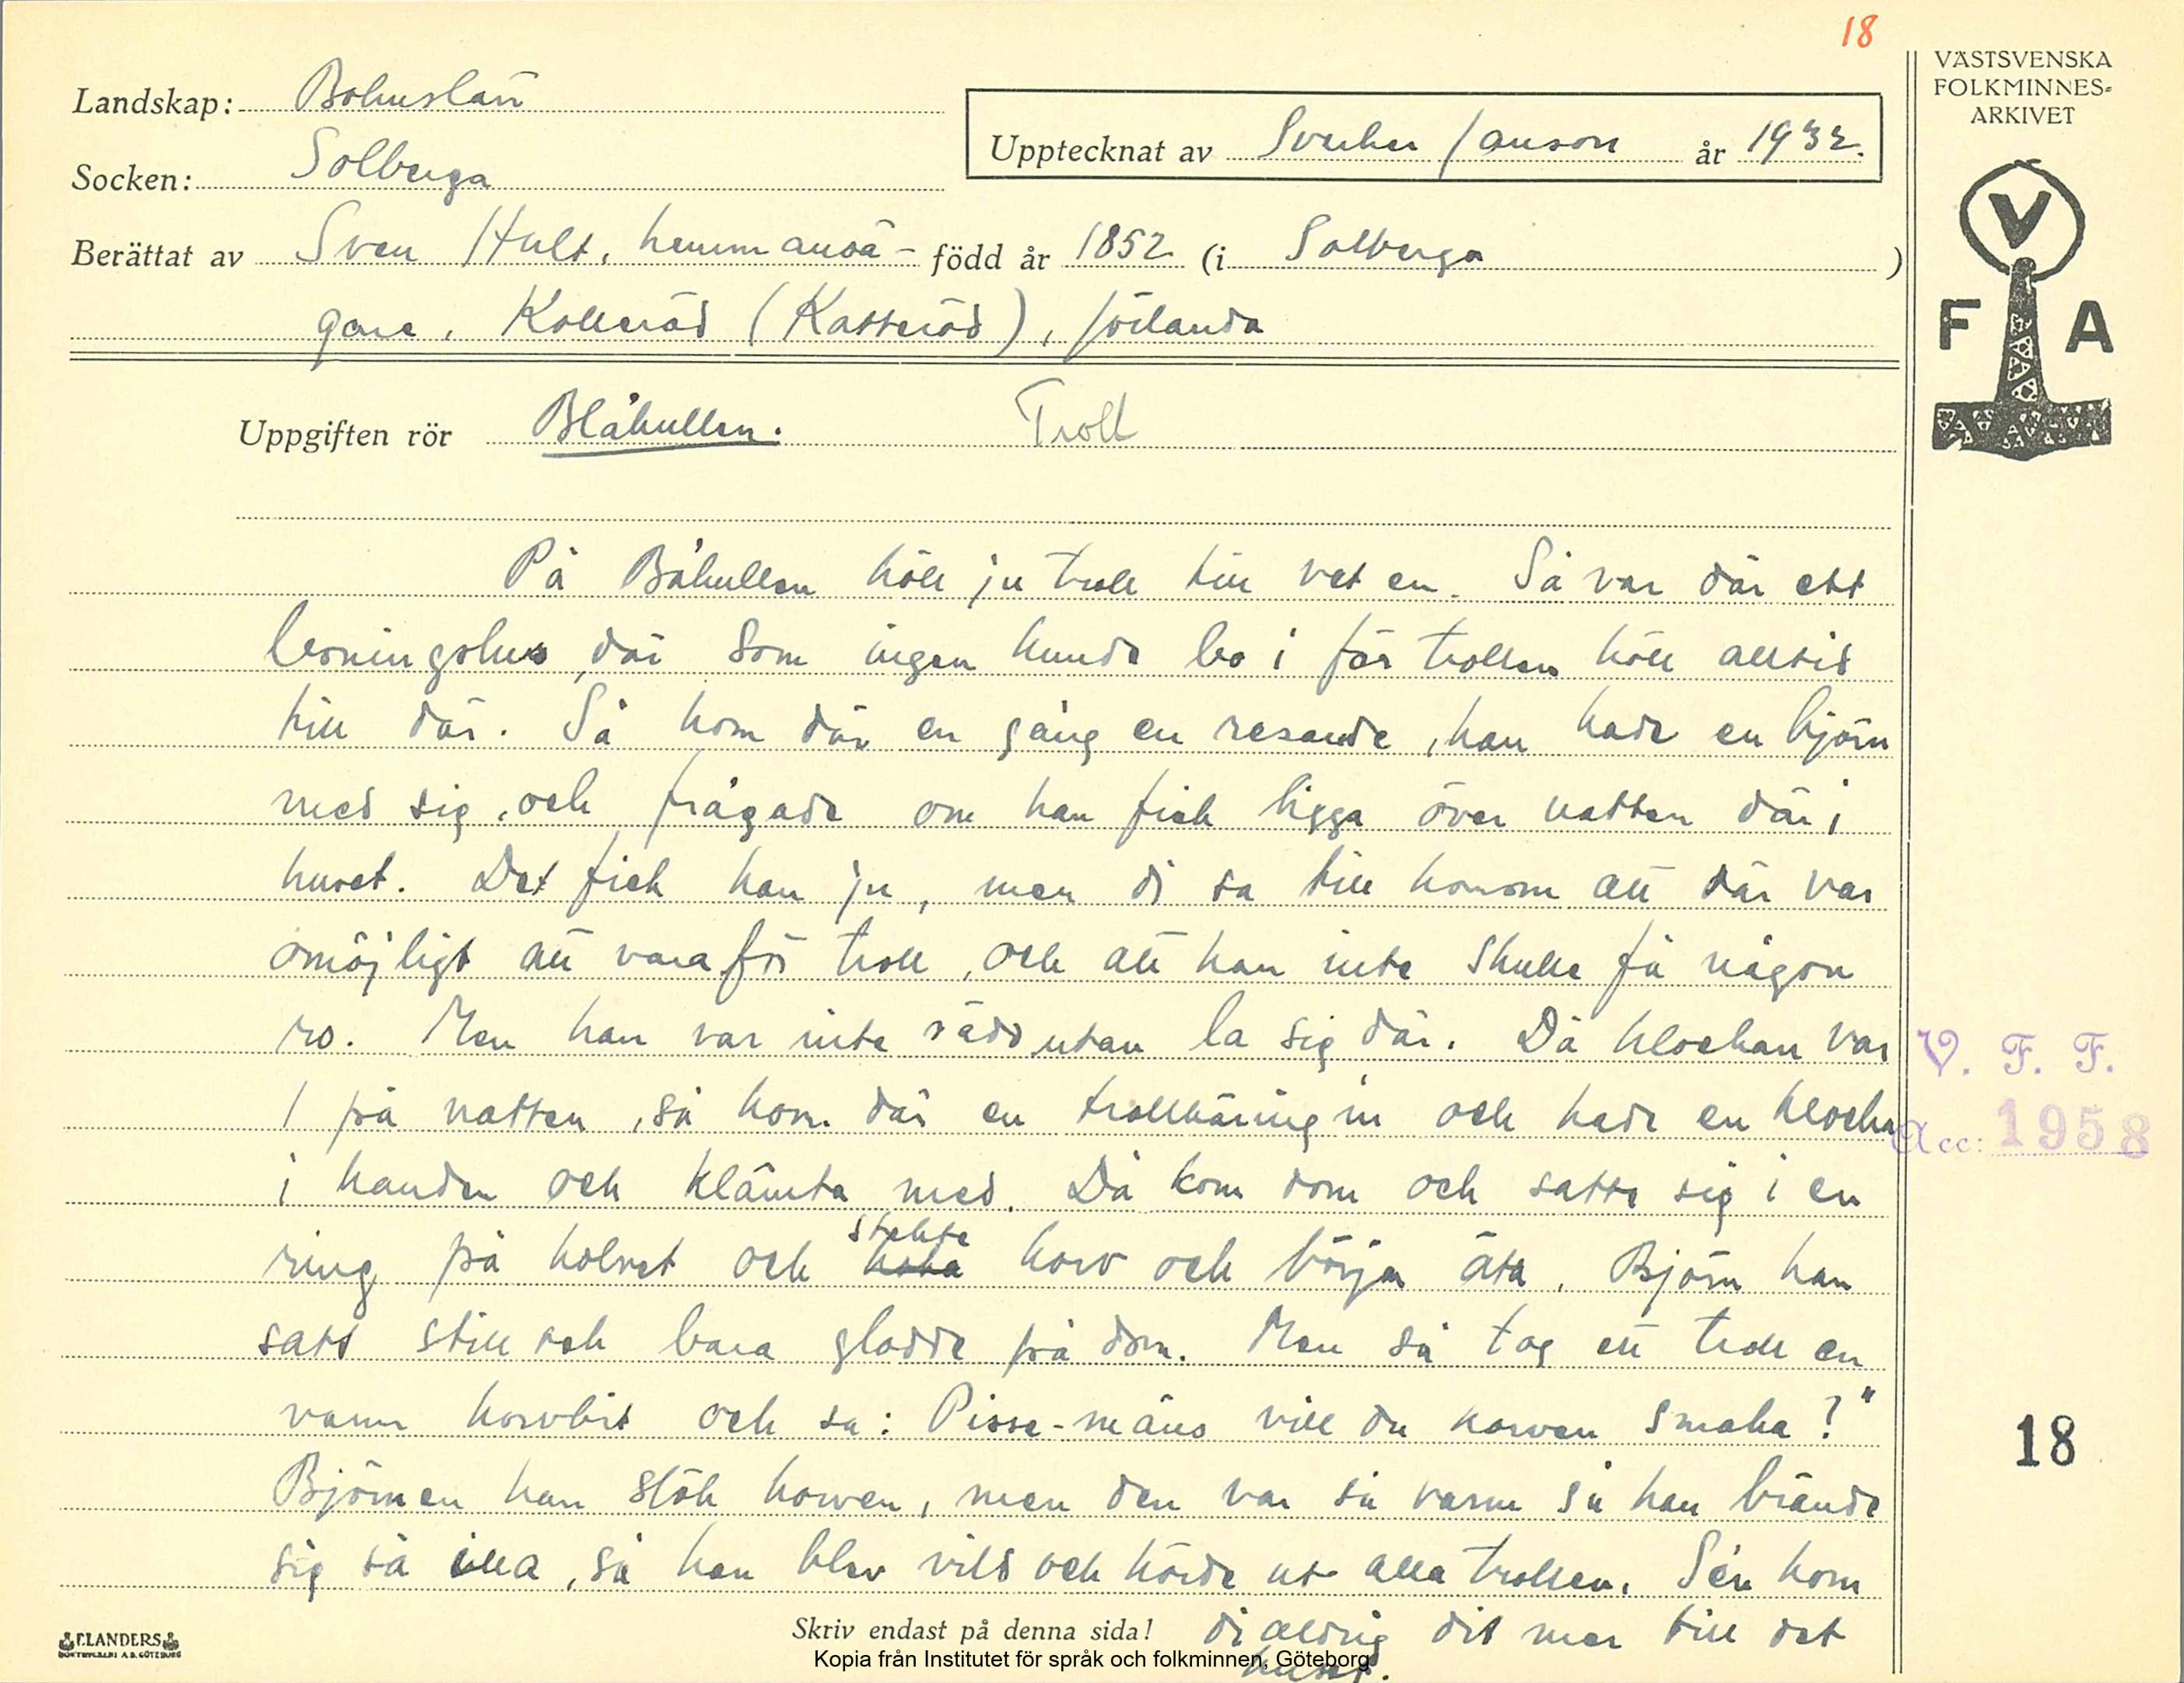 18
VÄSTSVENSKA
FOLKMINNES-
ARKIVET
Landskap: Bohuslän
Upptecknat av Sverker Janson år 1932.
Socken: Solberga
Berättat av Sven Hult, hemmansä- född år 1852 (i Solberga )
gare, Kolleröd (Katteröd), Jörlanda
V
F A
Uppgiften rör Blåkullen. Troll
På Blåkullen höll ju troll till vet en. Så var där ett
boningshus där som ingen kunde bo i för trollen höll alltid
till där. Så kom där en gång en resande, han hade en björn
med sig, och frågade om han fick ligga över natten där i
huset. Det fick han ju, men di sa till honom att där var
omöjligt att vara för troll, och att han inte skulle få någon
ro. Men han var inte rädd utan la sig där. Då klockan var
1 på natten, så kom där en trollkäring in och hade en klocka
i handen och klämta med. Då kom dom och satte sig i en
ring på holvet och koka stekte korv och börja äta. Björn han
satt still och bara glodde på dom. Men så tog ett troll en
varm korvbit och sa: Pisse-måns vill du korven smaka?"
Björnen han slök korven, men den var så varm så han brände
sig så illa, så han blev vild och körde ut alla trollen. Sén kom
di aldrig dit mer till det
huset.
V. F. F.
Acc: 1958
18
ELANDERS
BOKTRYCKERI A.B. GÖTEBORG
Skriv endast på denna sida!
Kopia från Institutet för språk och folkminnen, Göteborg